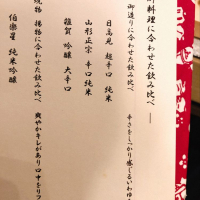 料理に合わせた飲み比べ ――
御造りに合わせた飲み比べ
辛さをしっかり感じるいわゆ
日高見 超辛口 純米
山形正宗 辛口純米
雑賀 吟醸 大辛口
焼物 揚物に合わせた飲み比べ
爽やかキレがあり口中をリフ
伯楽星 純米吟醸